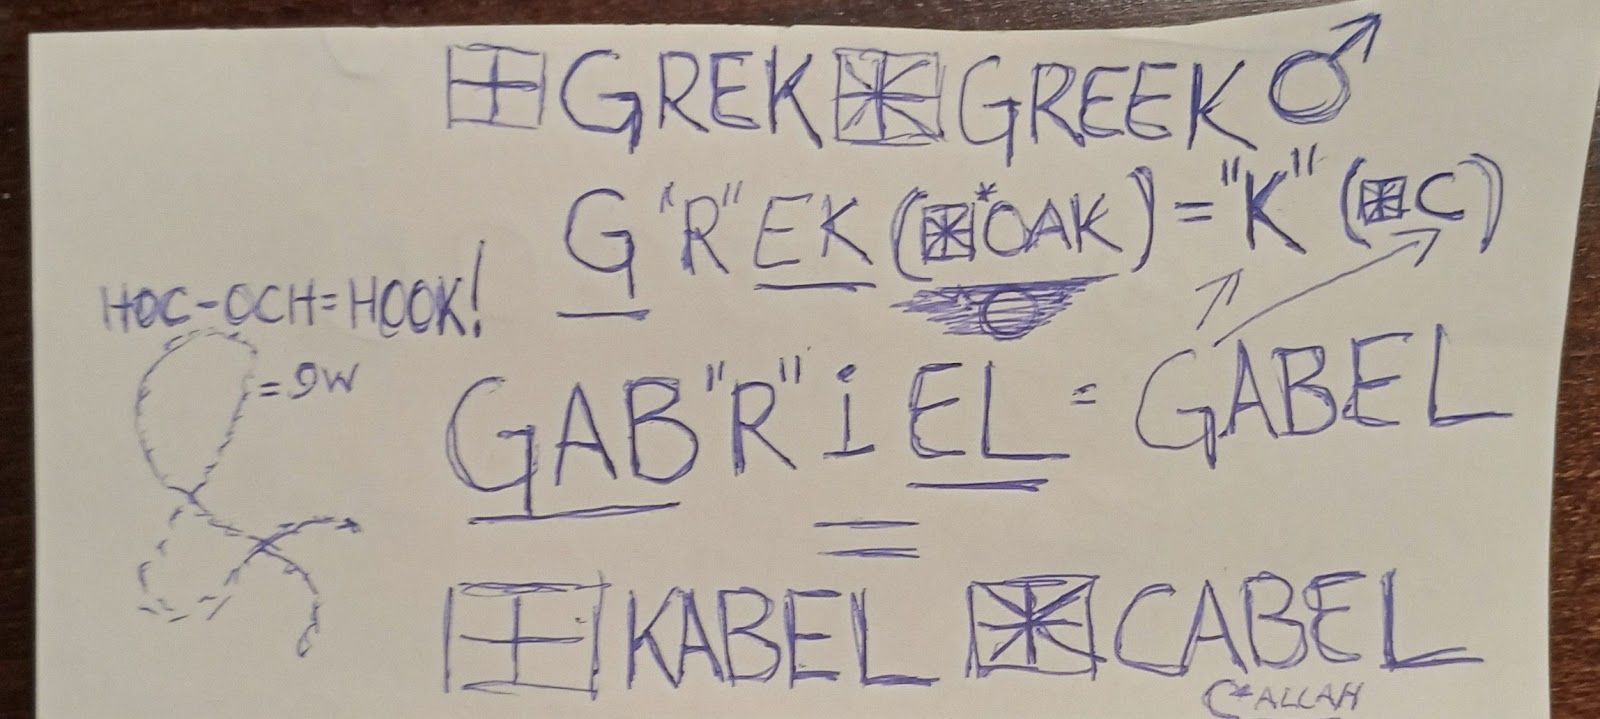 GREK GREEK
G "R" EK (*OAK) = "K" (C)
HOC-OCH=HOOK!
= 9W
GAB"R"iEL = GABEL
=
KABEL CABEL
C*ALLAH